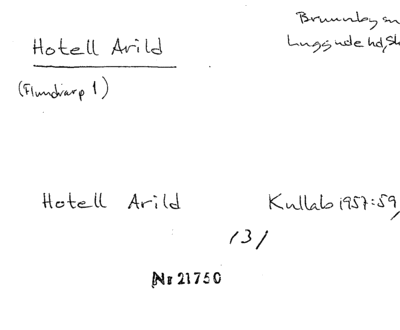 Hotell Arild
Brunnby sn
Luggude hd, Sk
(Flundrarp 1)
Hotell Arild
Kullab 1957:59,
/3/
Nr 21750